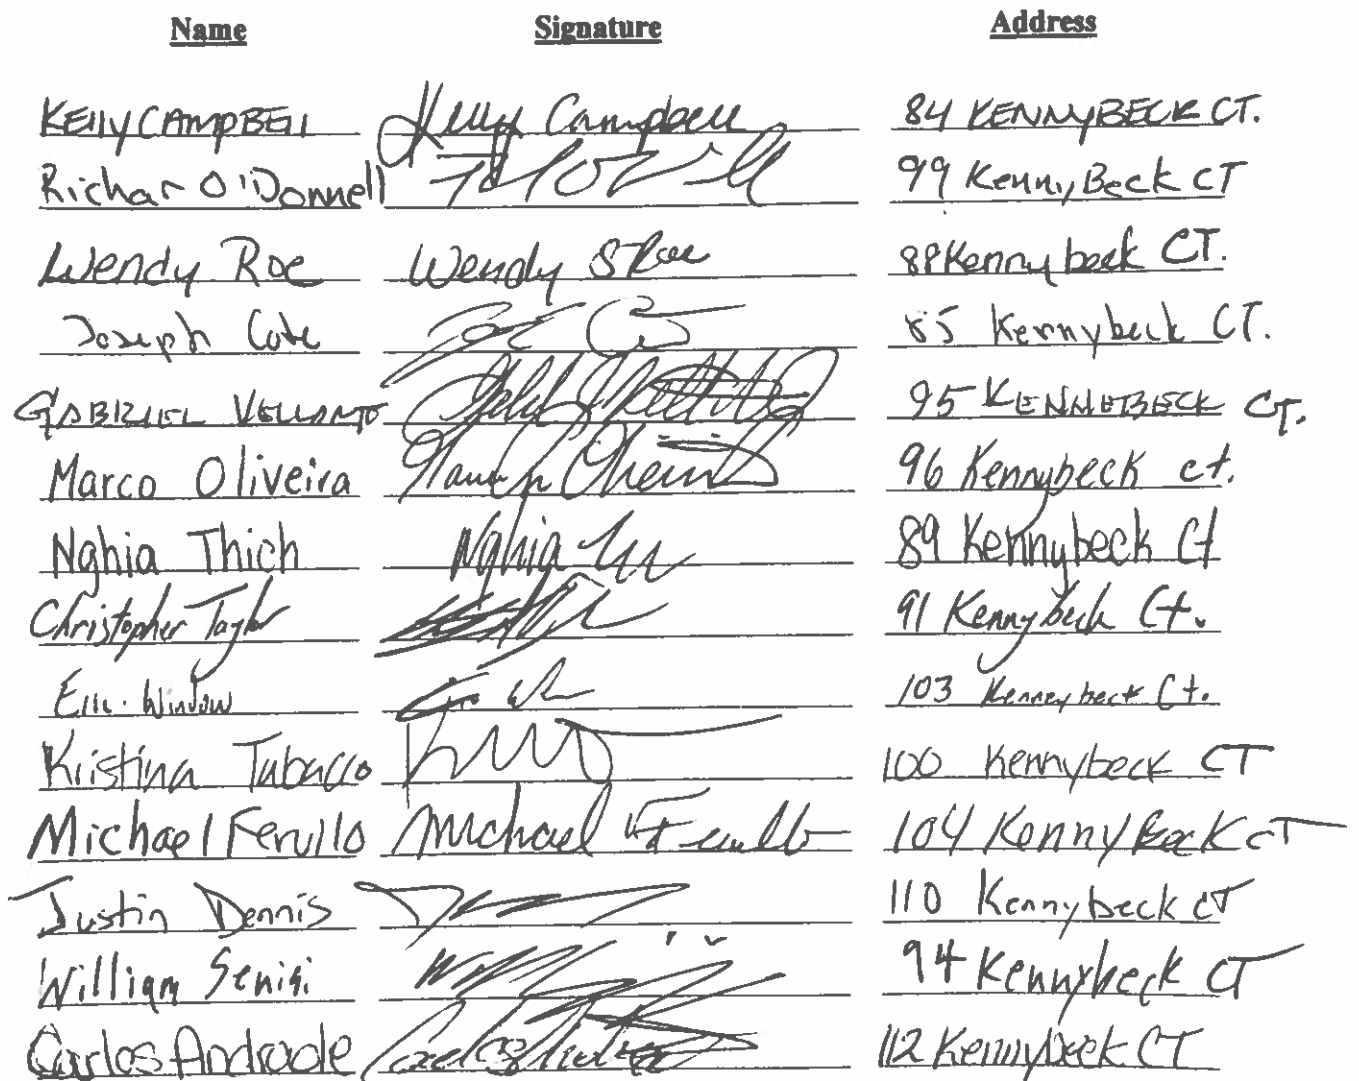 Name Signature Address
KELLY CAMPBELL Kelly Campbell 84 KENNYBECK CT.
Richar O'Donnell 99 KennyBeck CT
Wendy Roe Wendy S Roe 88 Kennybeck CT.
Joseph Cote 85 Kennybeck CT.
GABRIEL 95 KENNEBECK CT.
Marco Oliveira 96 Kennybeck ct.
Nghia Thich Nghia 89 Kennybeck Ct
Christopher Taylor 91 Kennybeck Ct.
Window 103 Kenneybeck Ct.
Kristina Tabacco 100 Kennybeck CT
Michael Ferullo Michael Ferullo 104 KennyBeck CT
Justin Dennis 110 Kennybeck CT
William Senisi 94 Kennybeck CT
Carlos Andrade 112 Kennybeck CT